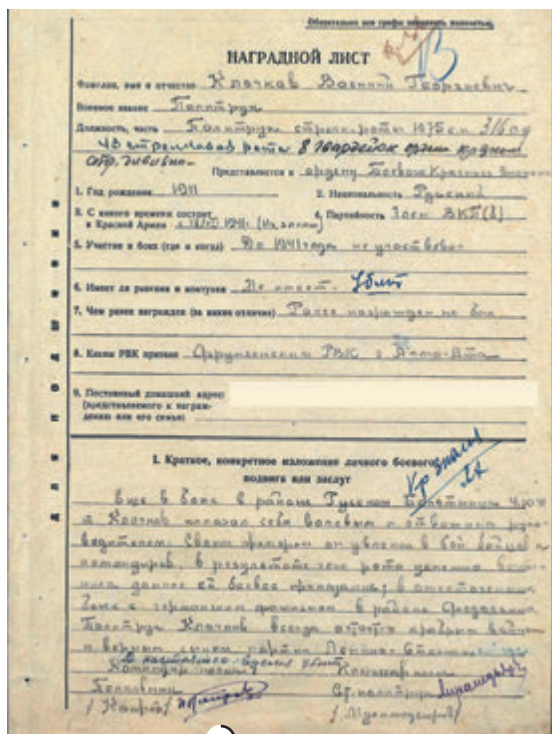 Обязательно все графы заполнять полностью.
13
НАГРАДНОЙ ЛИСТ
Фамилия, имя и отчество Клочков Василий Георгиевич
Военное звание Политрук
Должность, часть Политрук стрелк. роты 1075 сп 316 сд
стрелковой роты 8 гвардейск орден красном
стр. дивизии
Представляется к ордену Боевого Красного Знамени
1. Год рождения 1911 2. Национальность Русский
3. С какого времени состоит в Красной Армии 1941 г. (Из запаса) 4. Партийность Член ВКП(б)
5. Участие в боях (где и когда) До 1941 года не участвовал
6. Имеет ли ранения и контузии Не имеет. Убит
7. Чем ранее награжден (за какие отличия) Ранее награжден не был
8. Каким РВК призван Фрунзенским РВК г. Алма-Ата
9. Постоянный домашний адрес
(представляемого к награж-
дению или его семьи)
I. Краткое, конкретное изложение личного боевого
подвига или заслуг
Кр знамя
Еще в боях в районе
т Клочков показал себя волевым и отважным руко
водителем. Своим примером он увлекал в бой бойцов и
командиров, в результате чего рота успешно
данное ей боевое приказание; в ожесточенных
боях с германским фашизмом в районе
Политрук Клочков всегда
и верным сыном партии Ленина-Сталина
В настоящее время убит
Командир полка Комиссар
Полковник Ст. политрук
/Капров/ /Мухамедьяров/